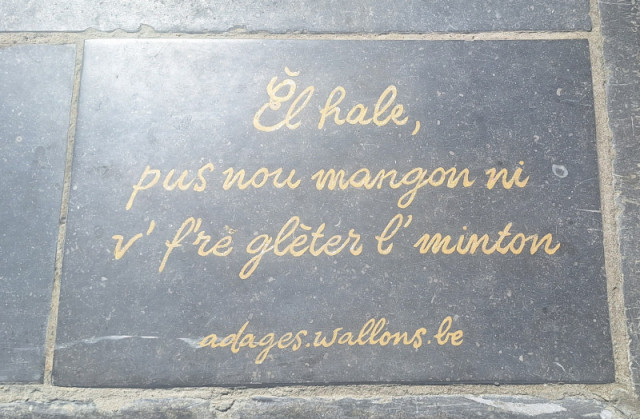 Èl hale,
pus nou mangon ni
v' f'rè glèter l' minton
adages.wallons.be